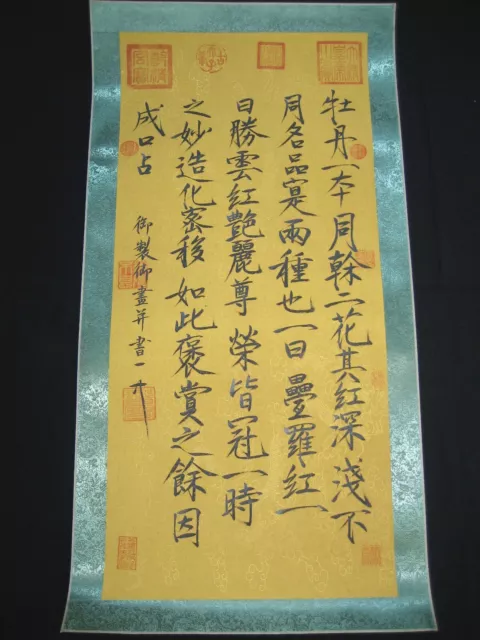 牡丹一本同榦二花其紅深淺不
同名品寔兩種也一曰疊羅紅一
曰勝雲紅艷麗尊榮皆冠一時
之妙造化密移如此褒賞之餘因
成口占
御製御畫并書一